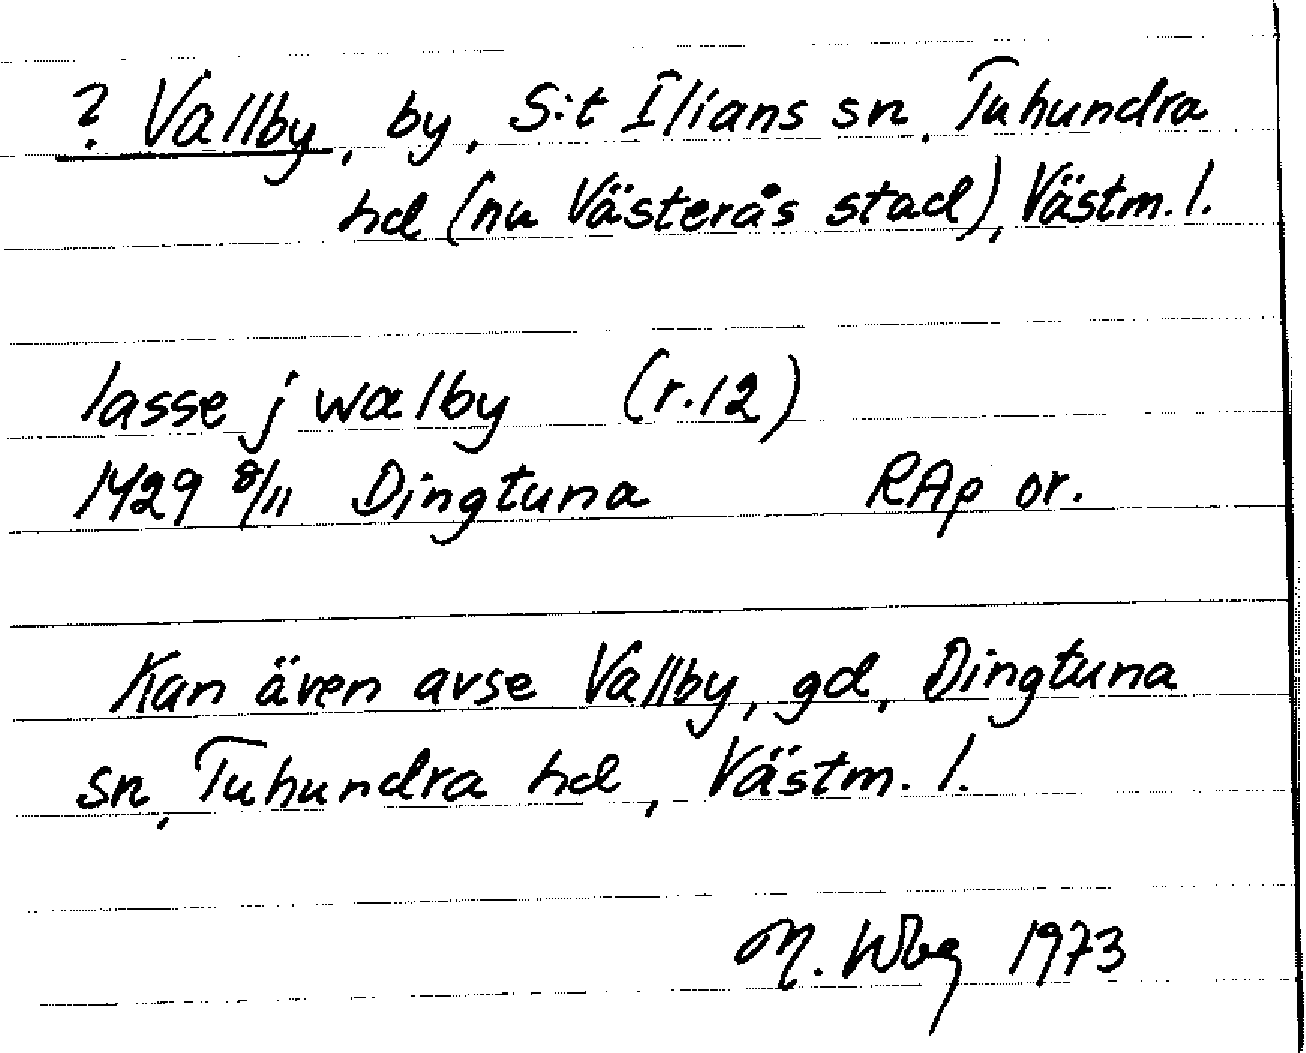 ? Vallby, by, S:t Ilians sn, Tuhundra
hd (nu Västerås stad), Västm. l.
lasse j walby (r.12)
1429 8/11 Dingtuna RAp or.
Kan även avse Vallby, gd, Dingtuna
sn, Tuhundra hd, Västm. l.
M. Wbg 1973